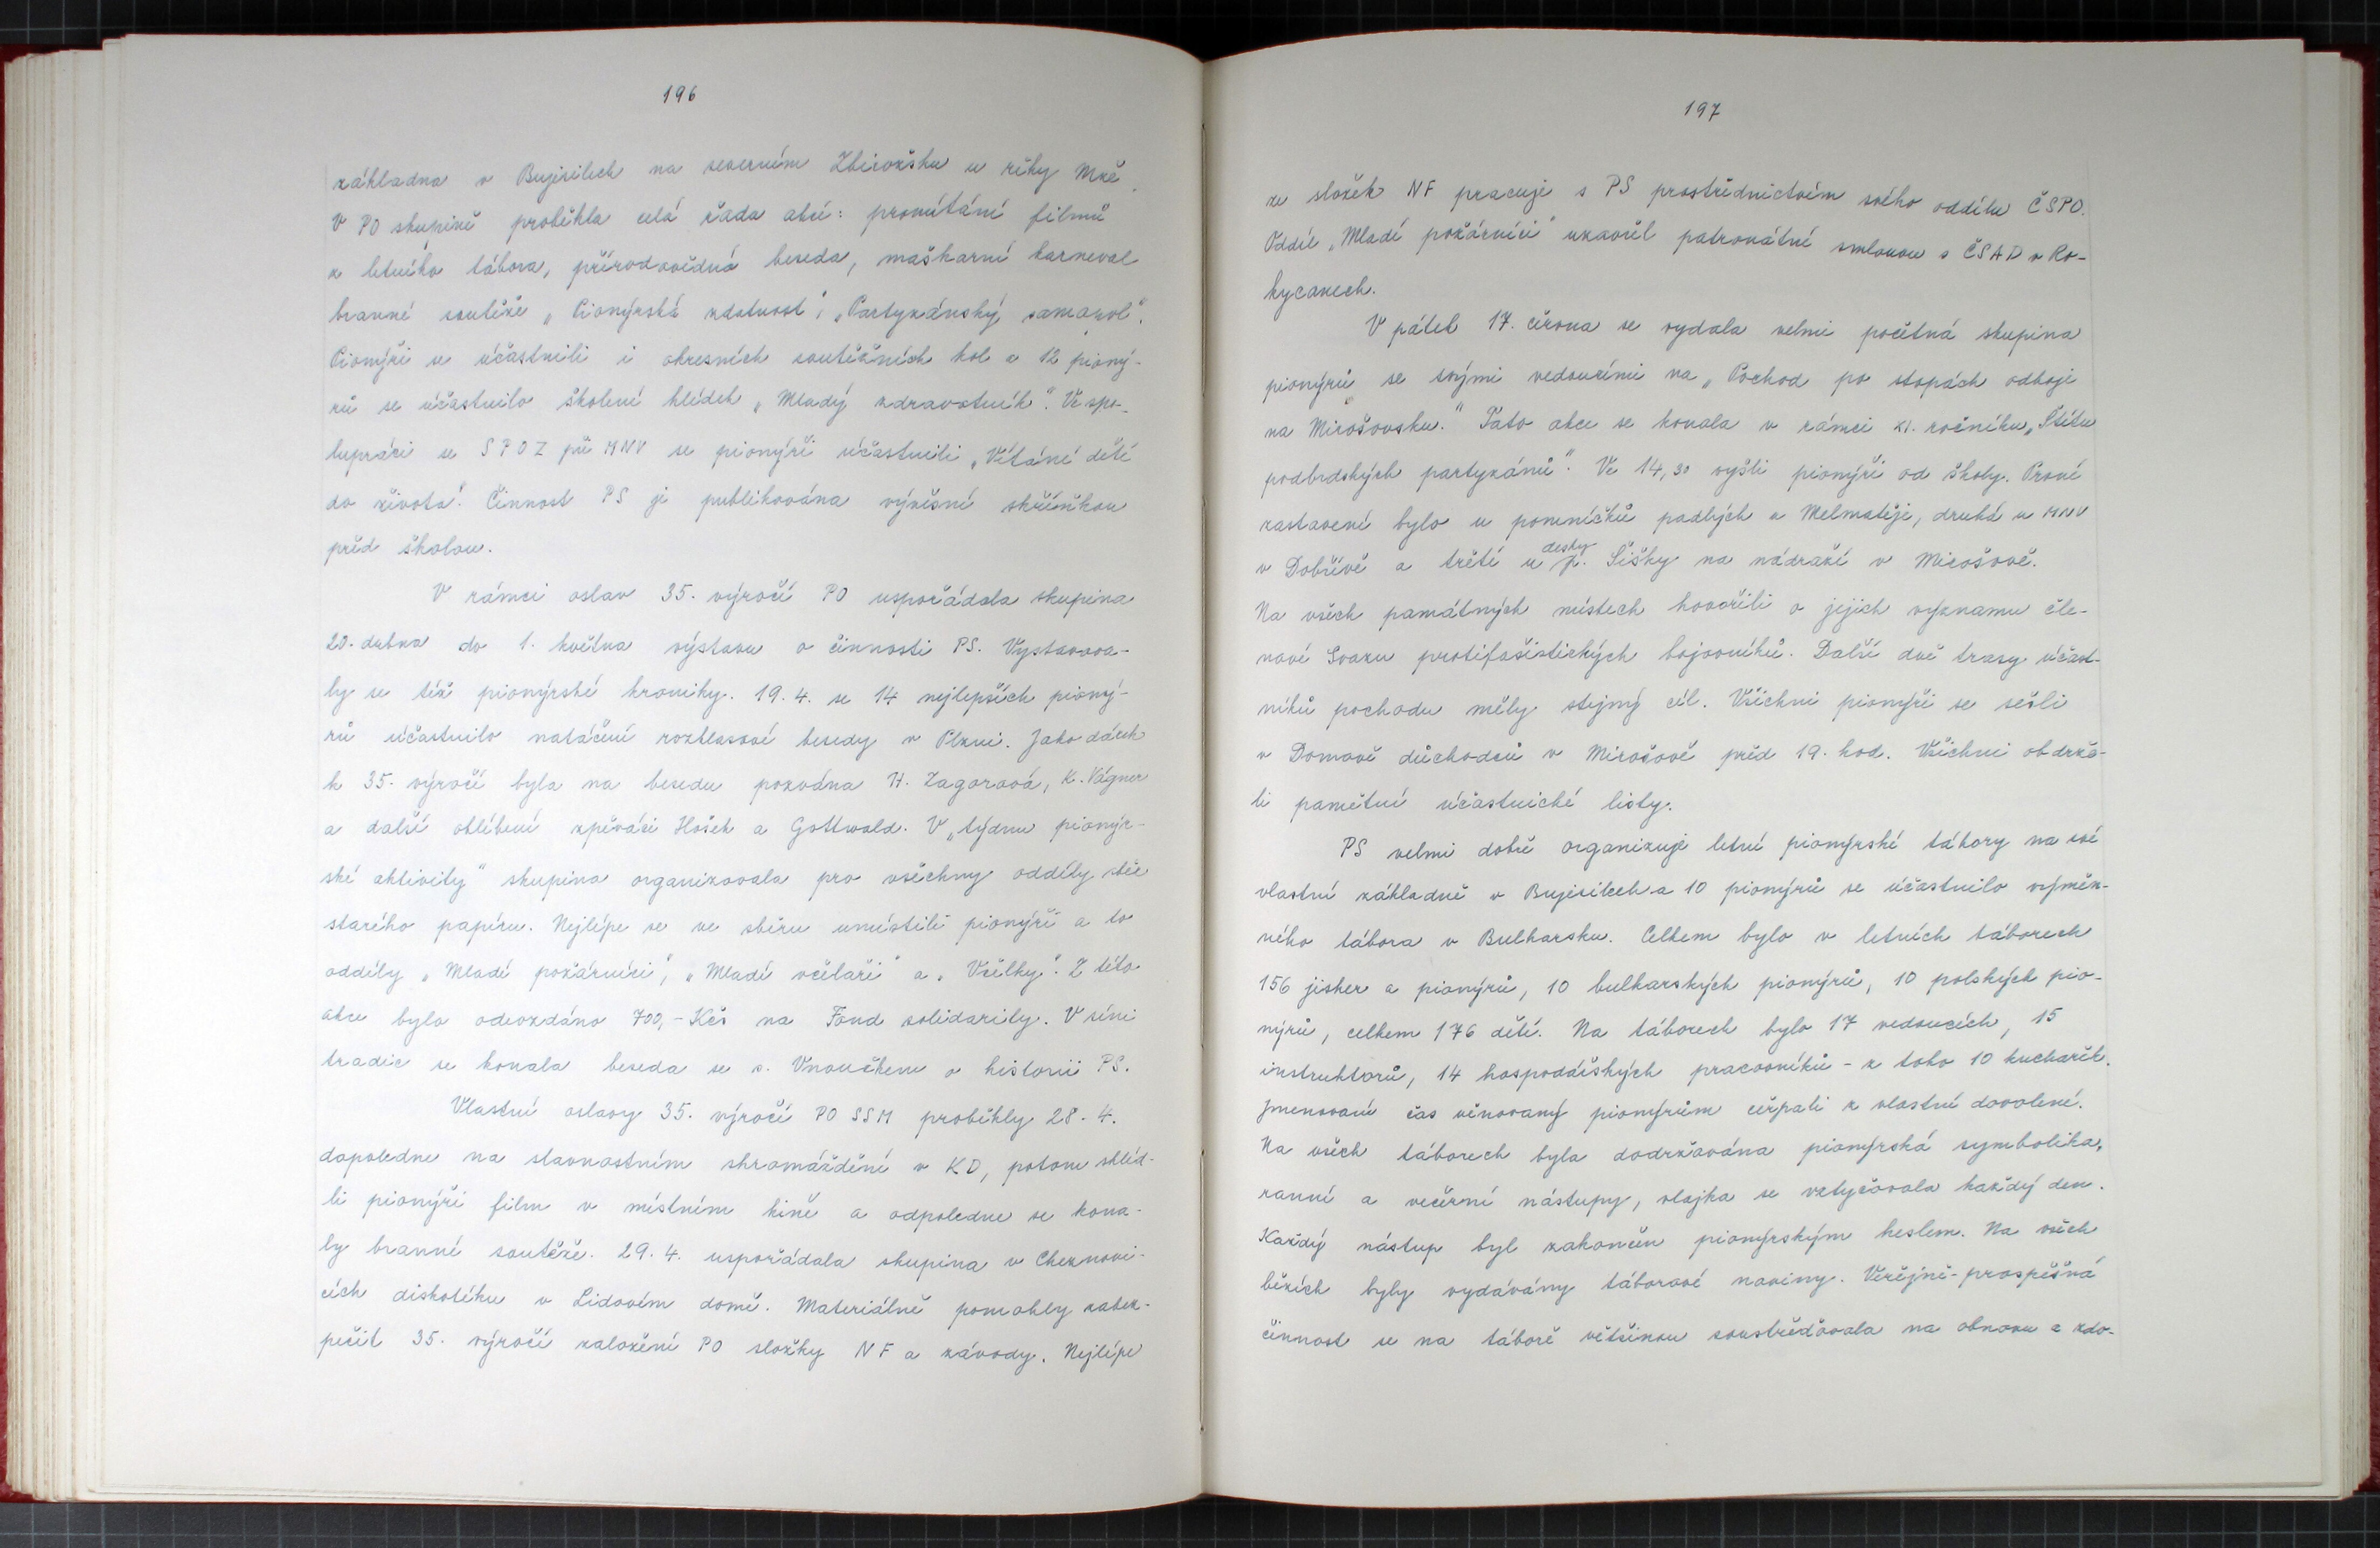 196
základna v Bujesilech na severním Zbirožsku u řéky Mže.
V PO skupině proběhla celá řada akcí: promítání filmů
z letního tábora, přírodovědná beseda, maškarní karneval
branné soutěže „Pionýrská zdatnost", „Partyzánský samopal".
Pionýři se účastnili i okresních soutěžních kol a 12 pioný-
rů se účastnilo školení hlídek „Mladý zdravotník". Ve spo-
lupráci se SPOZ při MNV se pionýři účastnili „Vítání dětí
do života". Činnost PS je publikována vývěsní skříňkou
před školou.
V rámci oslav 35. výročí PO uspořádala skupina
20. dubna do 1. května výstavu o činnosti PS. Vystavova-
ly se též pionýrské kroniky. 19. 4. se 14 nejlepších pioný-
rů účastnilo natáčení rozhlasové besedy v Plzni. Jako dárek
k 35. výročí byla na besedu pozvána H. Zagorová, K. Vágner
a další oblíbení zpěváci Hošek a Gottwald. V „týdnu pionýr-
ské aktivity" skupina organizovala pro všechny oddíly sběr
starého papíru. Nejlépe se ve sběru umístili pionýři a to
oddíly „Mladí požárníci", „Mladí včelaři" a „Včelky". Z této
akce bylo odevzdáno 700,- Kčs na Fond solidarity. V síni
tradic se konala beseda se s. Vnoučkem o historii PS.
Vlastní oslavy 35. výročí PO SSM proběhly 28. 4.
dopoledne na slavnostním shromáždění v KD, potom shléd-
li pionýři film v místním kině a odpoledne se kona-
ly branné soutěže. 29. 4. uspořádala skupina v Cheznovi-
cích diskotéku v Lidovém domě. Materiálně pomohly zabez-
pečit 35. výročí založení PO složky NF a závody. Nejlépe
197
ze složek NF pracuje s PS prostřednictvím svého oddílu ČSPO.
Oddíl „Mladí požárníci" uzavřel patronátní smlouvu s ČSAD v Ro-
kycanech.
V pátek 17. června se vydala velmi početná skupina
pionýrů se svými vedoucími na „Pochod po stopách odboje
na Mirošovsku." Tato akce se konala v rámci XI. ročníku „Štítu
podbrdských partyzánů". Ve 14,30 vyšli pionýři od školy. První
zastavení bylo u pomníčků padlých u Melmatěje, druhá u MNV
v Dobřívě a třetí u desky p. Šišky na nádraží v Mirošově.
Na všech památných místech hovořili o jejich významu čle-
nové Svazu protifašistických bojovníků. Další dvě trasy účast-
níků pochodu měly stejný cíl. Všichni pionýři se sešli
v Domově důchodců v Mirošově před 19. hod. Všichni obdrže-
li pamětní účastnické listy.
PS velmi dobře organizuje letní pionýrské tábory na své
vlastní základně v Bujesilech a 10 pionýrů se účastnilo výměn-
ného tábora v Bulharsku. Celkem bylo v letních táborech
156 jisker a pionýrů, 10 bulharských pionýrů, 10 polských pio-
nýrů, celkem 176 dětí. Na táborech bylo 17 vedoucích, 15
instruktorů, 14 hospodářských pracovníků - z toho 10 kuchařek.
Jmenovaní čas věnovaný pionýrům čerpali z vlastní dovolené.
Na všech táborech byla dodržována pionýrská symbolika,
ranní a večerní nástupy, vlajka se vztyčovala každý den.
Každý nástup byl zakončen pionýrským heslem. Na všech
bězích byly vydávány táborové noviny. Veřejně-prospěšná
činnost se na táboře většinou soustřeďovala na obnovu a zdo-